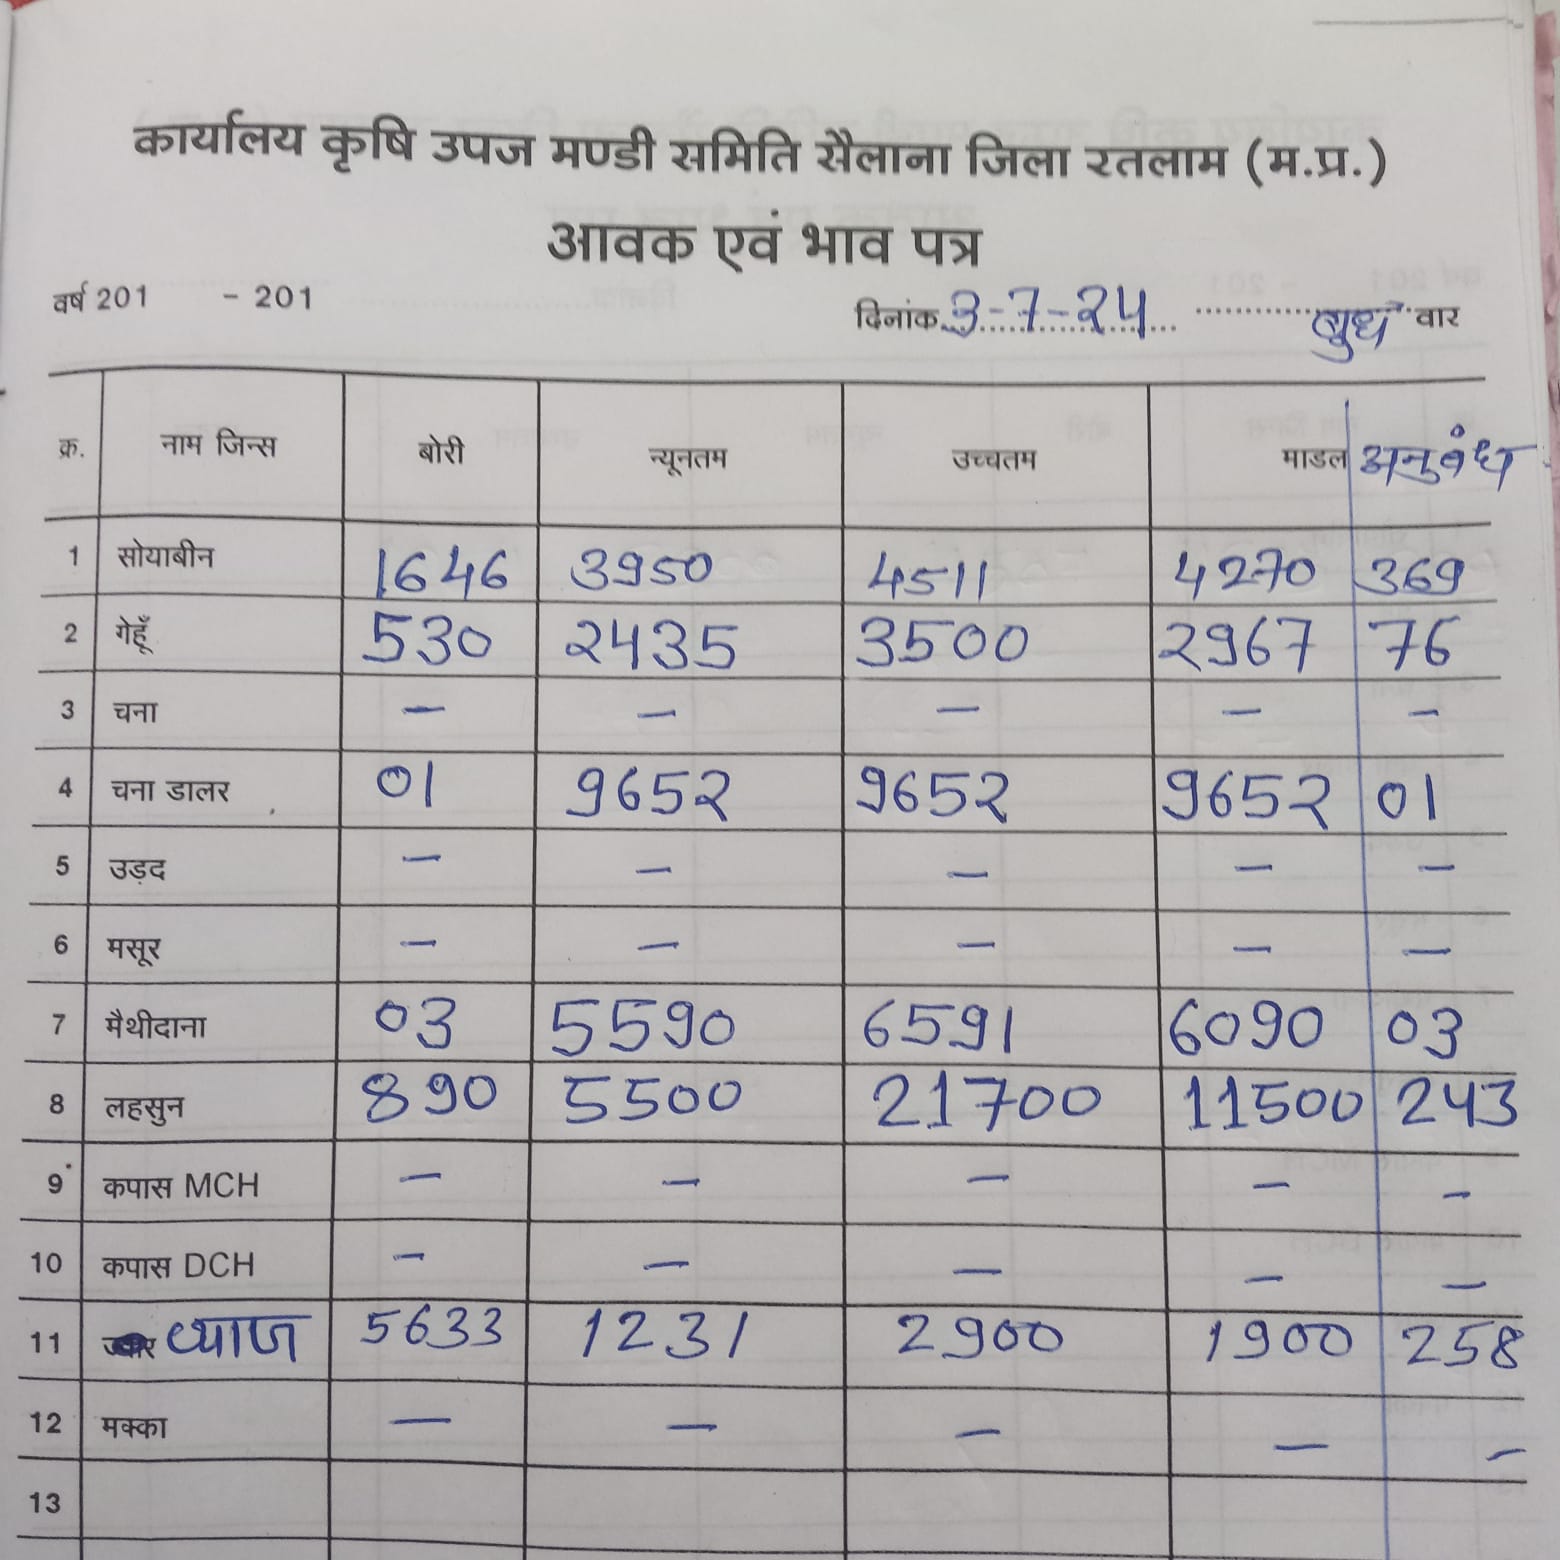 कार्यालय कृषि उपज मण्डी समिति सैलाना जिला रतलाम (म.प्र.)
आवक एवं भाव पत्र
वर्ष 201 - 201 दिनांक 3-7-24 बुध वार
क्र. नाम जिन्स बोरी न्यूनतम उच्चतम माडल अनुबंध
1 सोयाबीन 1646 3950 4511 4270 369
2 गेहूँ 530 2435 3500 2967 76
3 चना - - - - -
4 चना डालर 01 9652 9652 9652 01
5 उड़द - - - - -
6 मसूर - - - - -
7 मैथीदाना 03 5590 6591 6090 03
8 लहसुन 890 5500 21700 11500 243
9 कपास MCH - - - - -
10 कपास DCH - - - - -
11 प्याज 5633 1231 2900 1900 258
12 मक्का - - - - -
13